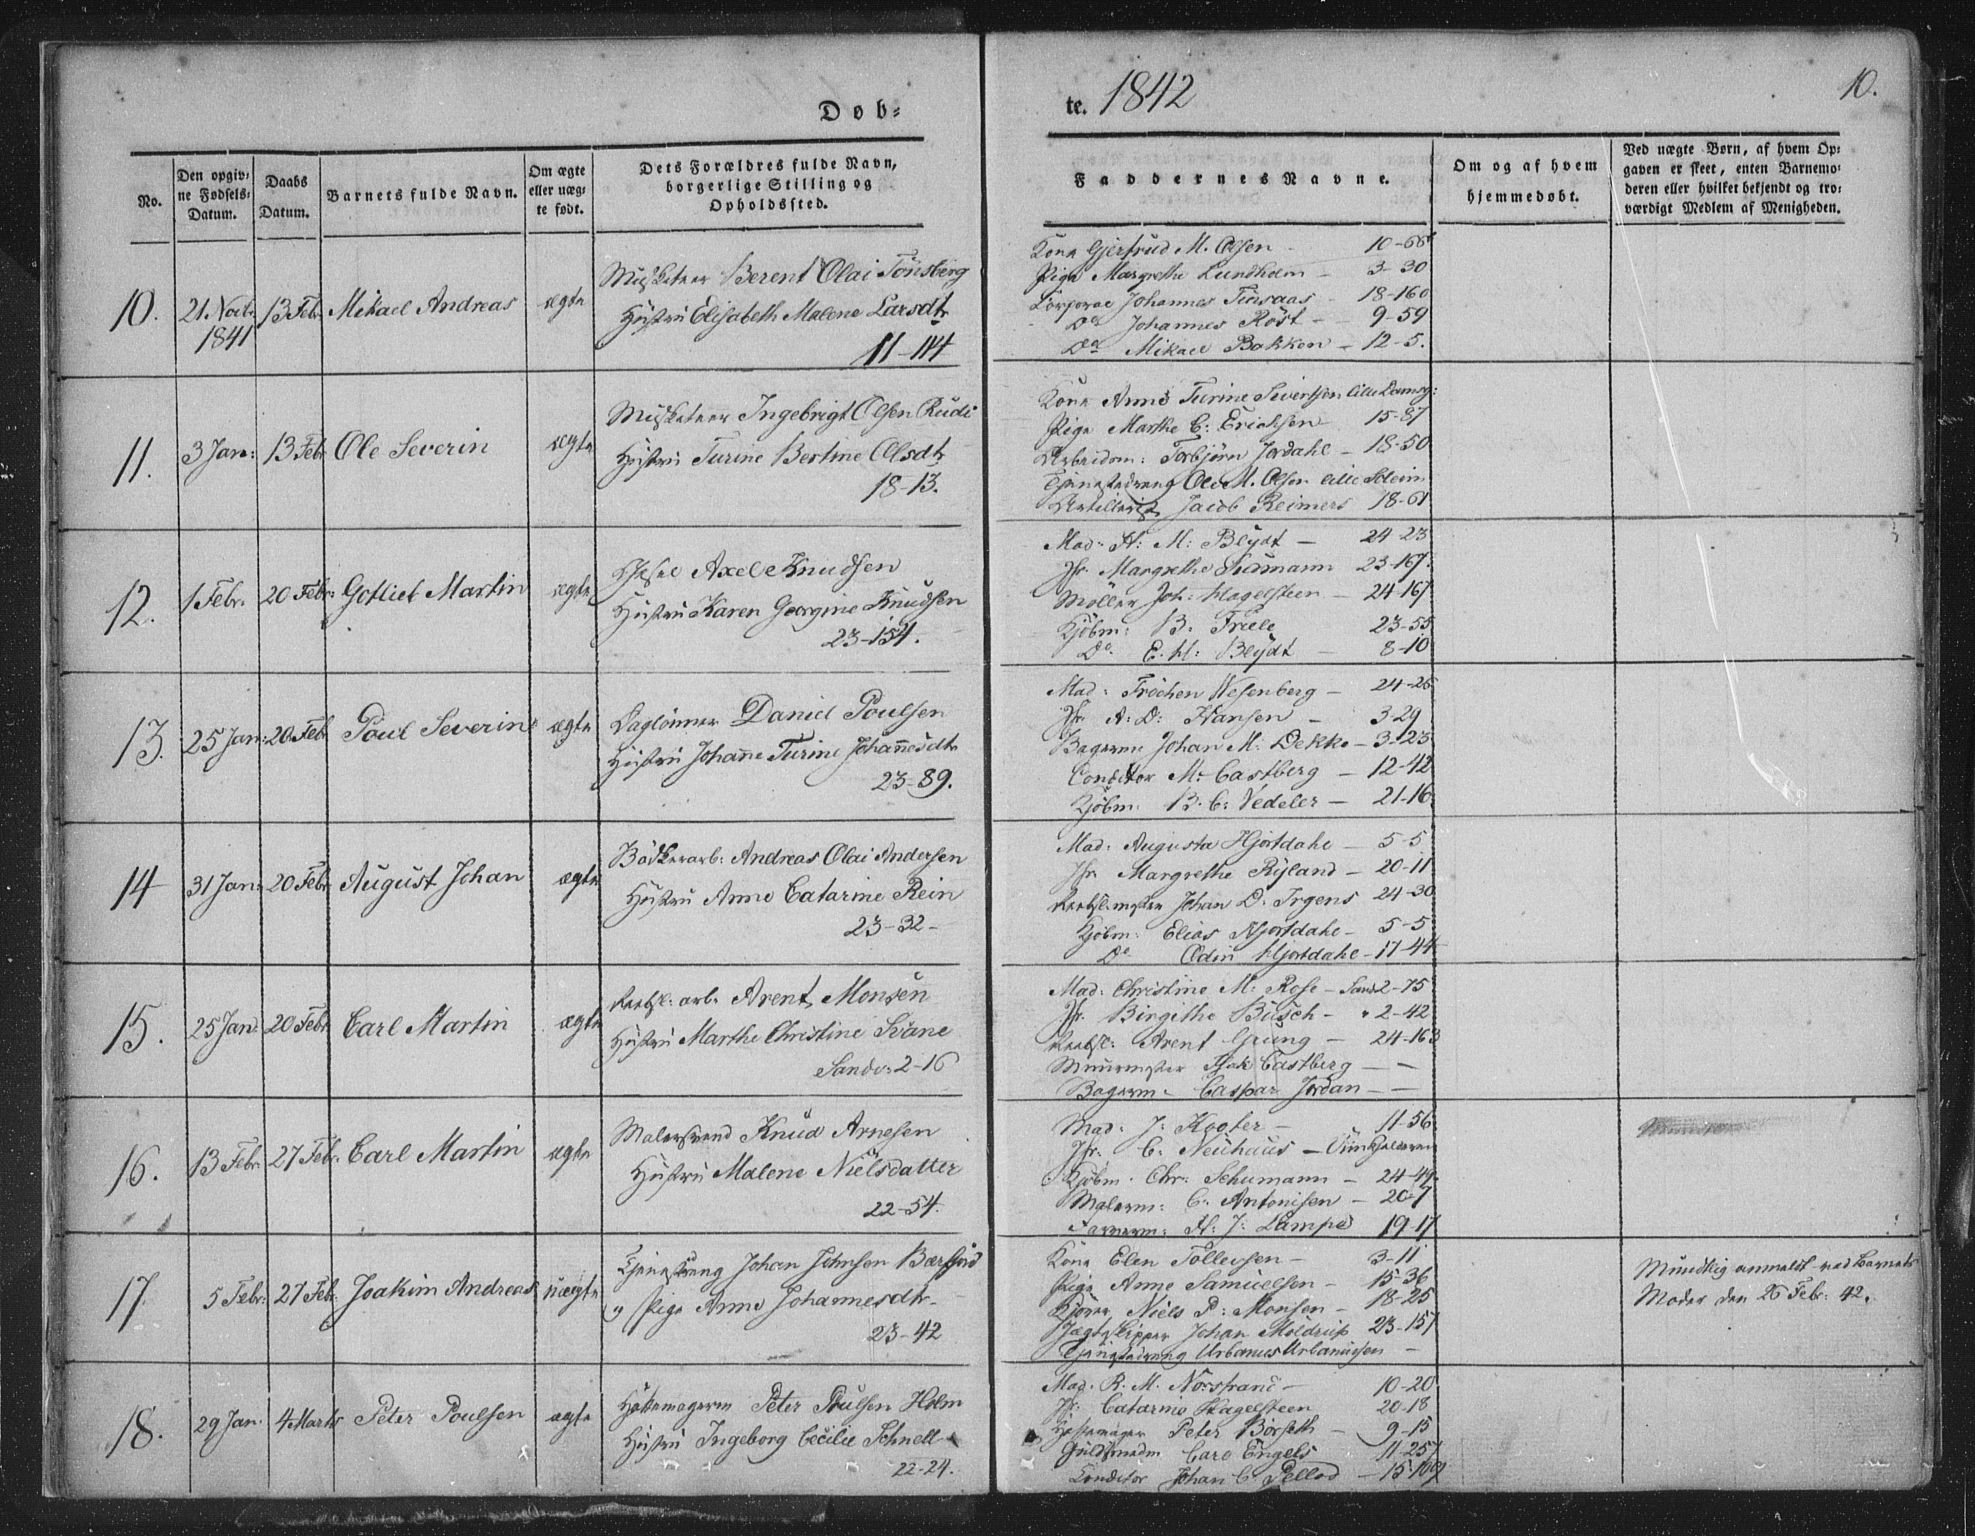 Døb=
te. 1842
10.
No.
Den opgiv=
ne Fødsels=
Datum.
Daabs
Datum.
Barnets fulde Navn.
Om ægte
eller uæg=
te født.
Dets Forældres fulde Navn,
borgerlige Stilling og
Opholdssted.
Faddernes Navne.
Om og af hvem
hjemmedøbt.
Ved uægte Børn, af hvem Op=
gaven er skeet, enten Barnemo=
deren eller hvilket bekjendt og tro=
værdigt Medlem af Menigheden.
10. 21 Novb. 13 Feb. Mikael Andreas ægte
1841
Musketeer Berent Olai Tönsberg
Hustru Elisabeth Malene Larsdtr
11-114
Kone Gjertrud M. Olsen - 10-66
Pige Margrethe Lundholm - 3-30
Corporal Johannes Finsaas - 18-160
Do Johannes Röst - 9-59
Do Mikael Bakken - 12-5.
11. 3 Jan: 13 Feb. Ole Severin ægte
Musketeer Ingebrigt Olsen Rudi
Hustru Turine Bertine Olsdtr
18-13.
Kone Anne Turine Sivertsen lille Damsg:
Pige Marthe C: Ericksen 15-87
Arbeidsm: Torbjörn Jordahl - 18-50
Tjenestedreng Ole M. Olsen lille Soleim
Artillerist Jacob Reimers 18-61
12. 1 Febr. 20 Febr. Gotlieb Martin ægte
Axel Knudsen
Hustru Karen Georgine Knudsen
23-154.
Mad: H: M: Blydt - 24-23
Jfr. Margrethe Sudmann 23-167.
Möller Joh: Hagelsteen - 24-167
Kjöbm: B: Friele 23-55
Do. E. H: Blydt - 8-10
13. 25 Jan: 20 Feb. Poul Severin ægte
Daglönner Daniel Poulsen
Hustru Johanne Turine Johannesdtr
23-89.
Mad: Tröchen Wesenberg - 24-26
Jfr. A: D: Hansen - 3-29
Bagerm Johan M: Dekke - 3-23
Conditor M: Castberg - 12-42
Kjöbm: B. C: Vedeler - 21-16
14 31 Jan: 20 Febr. August Johan ægte
Bödkerarb: Andreas Olai Andersen
Hustru Anne Catarine Rein
23-32-
Mad: Augusta Hjortdahl - 5-5
Jfr Margrethe Ryland - 20-11
Johan D. Irgens 24-30
Kjöbm: Elias Hjortdahl - 5-5
Do Odin Hjortdahl - 17-44
15. 25 Jan: 20 Febr. Carl Martin ægte
Arent Monsen
Hustru Marthe Christine Svane
Sandv: 2-16
Mad: Christine M. Rose - Sandv 2-75
Jfr. Birgithe Busch - " 2-42
Arent Grung - 24-163
Muurmester Isak Castberg - -
Bagerm: Caspar Jordan - -
16. 13 Febr. 27 Febr. Carl Martin ægte
Malersvend Knud Arnesen
Hustru Malene Nielsdatter
22-54.
Mad: J: Kooter - 11-56
Jfr. C. Neuhaus - Viinkjelderen
Kjöbm. Chr: Schumann - 24-49.
Malerm: C. Antonisen - 20-7
Farverm: H: J: Lampe 19-17
17. 5 Febr. 27 Feb. Joakim Andreas uægte
Tjenestdreng Johan Johnsen
og Pige Anne Johannesdtr-
23-42
Kone Elen Tollevsen - 3-11
Pige Anne Samuelsen - 15-36
Niels P: Monsen - 18-25
Jægtskipper Johan Moldrup 23-157
Tjenestedreng Urbanus Urbanusen -
Mundtlig anmeldt ved Barnets
Moder den 26 Febr: 42.
18. 29 Jan. 4 Marts Peter Poulsen ægte
Hattemagerm Peter Poulsen Holm
Hustru Ingeborg Cecilie Schnell
22-24.
Mad. R. M. Norstrand - 10-20
Jfr: Catarine Hagelsteen 20-18
Hattemager Peter Börseth - 9-15
Guldsmedm Carl Engels 11-25
Conditor Johan C. - 15-109